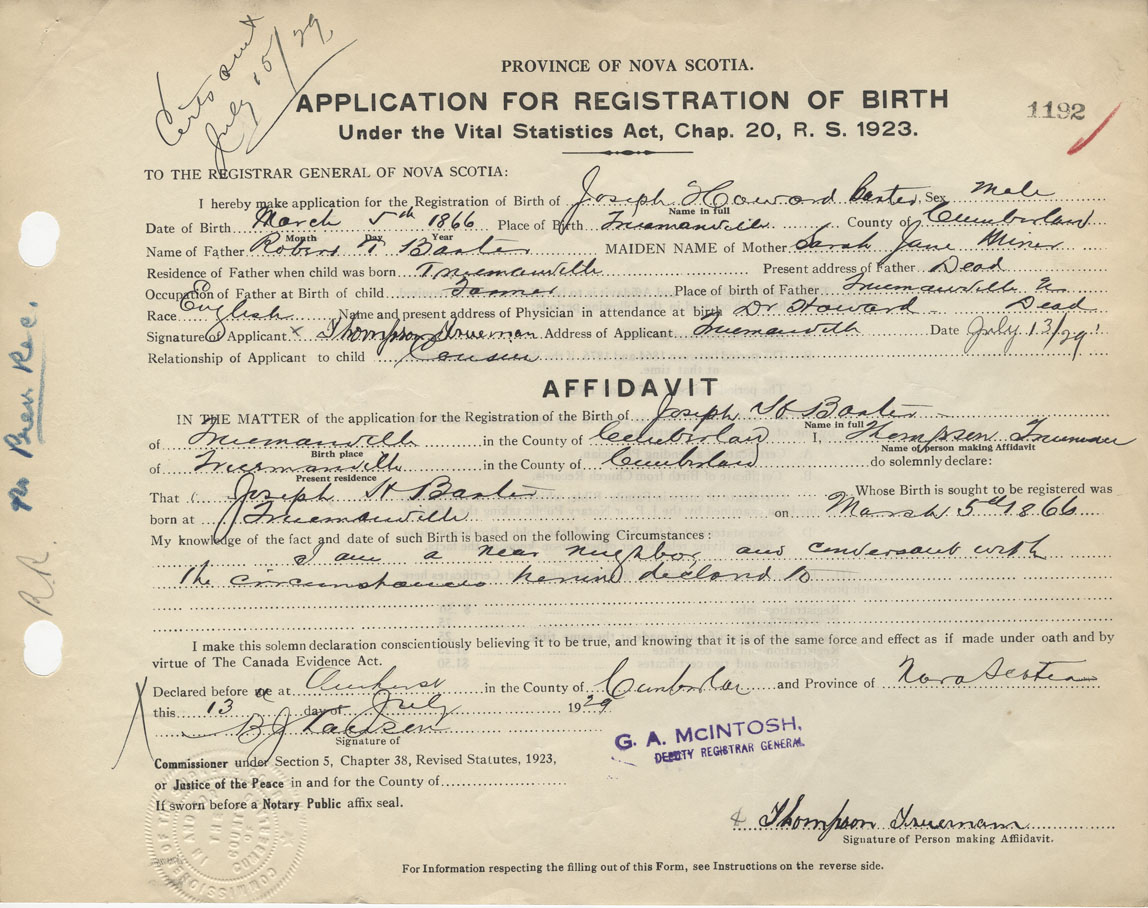 Certs out
July 15/29
PROVINCE OF NOVA SCOTIA.
APPLICATION FOR REGISTRATION OF BIRTH
1192
Under the Vital Statistics Act, Chap. 20, R. S. 1923.
TO THE REGISTRAR GENERAL OF NOVA SCOTIA:
I hereby make application for the Registration of Birth of Joseph Howard Baxter Sex Male
Name in full
Date of Birth March 5th 1866 Place of Birth Truemanville County of Cumberland
Month Day Year
Name of Father Robert T Baxter MAIDEN NAME of Mother Sarah Jane Miner
Residence of Father when child was born Truemanville Present address of Father Dead
Occupation of Father at Birth of child Farmer Place of birth of Father Truemanville
Race English Name and present address of Physician in attendance at birth Dr Howard Dead
Signature of Applicant x Thompson Trueman Address of Applicant Truemanville Date July 13/29
Relationship of Applicant to child Cousin
AFFIDAVIT
IN THE MATTER of the application for the Registration of the Birth of Joseph H Baxter
Name in full
of Truemanville in the County of Cumberland I, Thompson Trueman
Birth place Name of person making Affidavit
of Truemanville in the County of Cumberland do solemnly declare:
Present residence
That Joseph H Baxter Whose Birth is sought to be registered was
born at Truemanville on March 5th 1866
My knowledge of the fact and date of such Birth is based on the following Circumstances:
I am a near neighbor and conversant with
the circumstances herein declared to
I make this solemn declaration conscientiously believing it to be true, and knowing that it is of the same force and effect as if made under oath and by
virtue of The Canada Evidence Act.
Declared before me at Amherst in the County of Cumberland and Province of Nova Scotia
this 13 day of July 1929
Signature of
G. A. McINTOSH,
DEPUTY REGISTRAR GENERAL.
Commissioner under Section 5, Chapter 38, Revised Statutes, 1923,
or Justice of the Peace in and for the County of
If sworn before a Notary Public affix seal.
Thompson Trueman
Signature of Person making Affidavit.
For Information respecting the filling out of this Form, see Instructions on the reverse side.
no Prev Rec.
R.R.